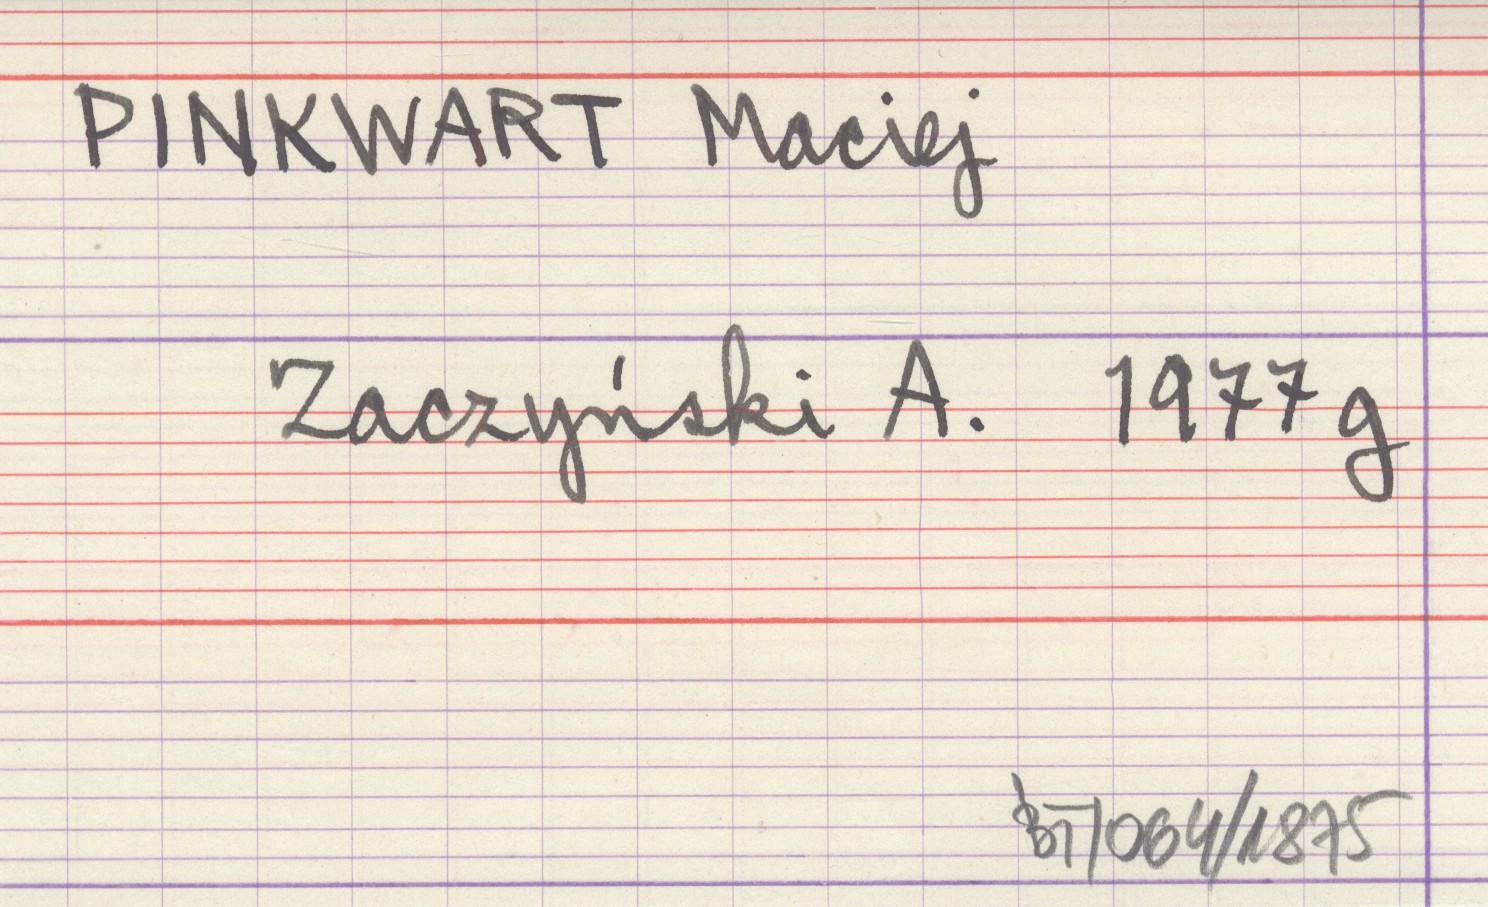 PINKWART Maciej
Zaczyński A. 1977g
BT/064/1875